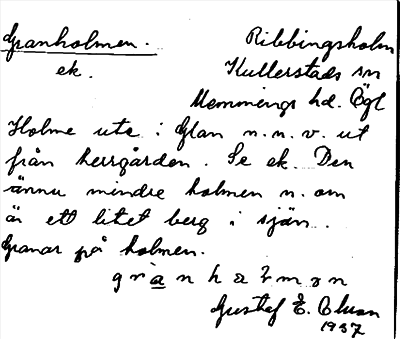 Granholmen. Ribbingsholm
ek. Kullerstads sn
Memmings hd. Ögl
Holme ute i Glan n.n.v. ut
från herrgården. Se ek. Den
ännu mindre holmen n. om
är ett litet berg i sjön.
Granar på holmen.
Gustaf E.
1937